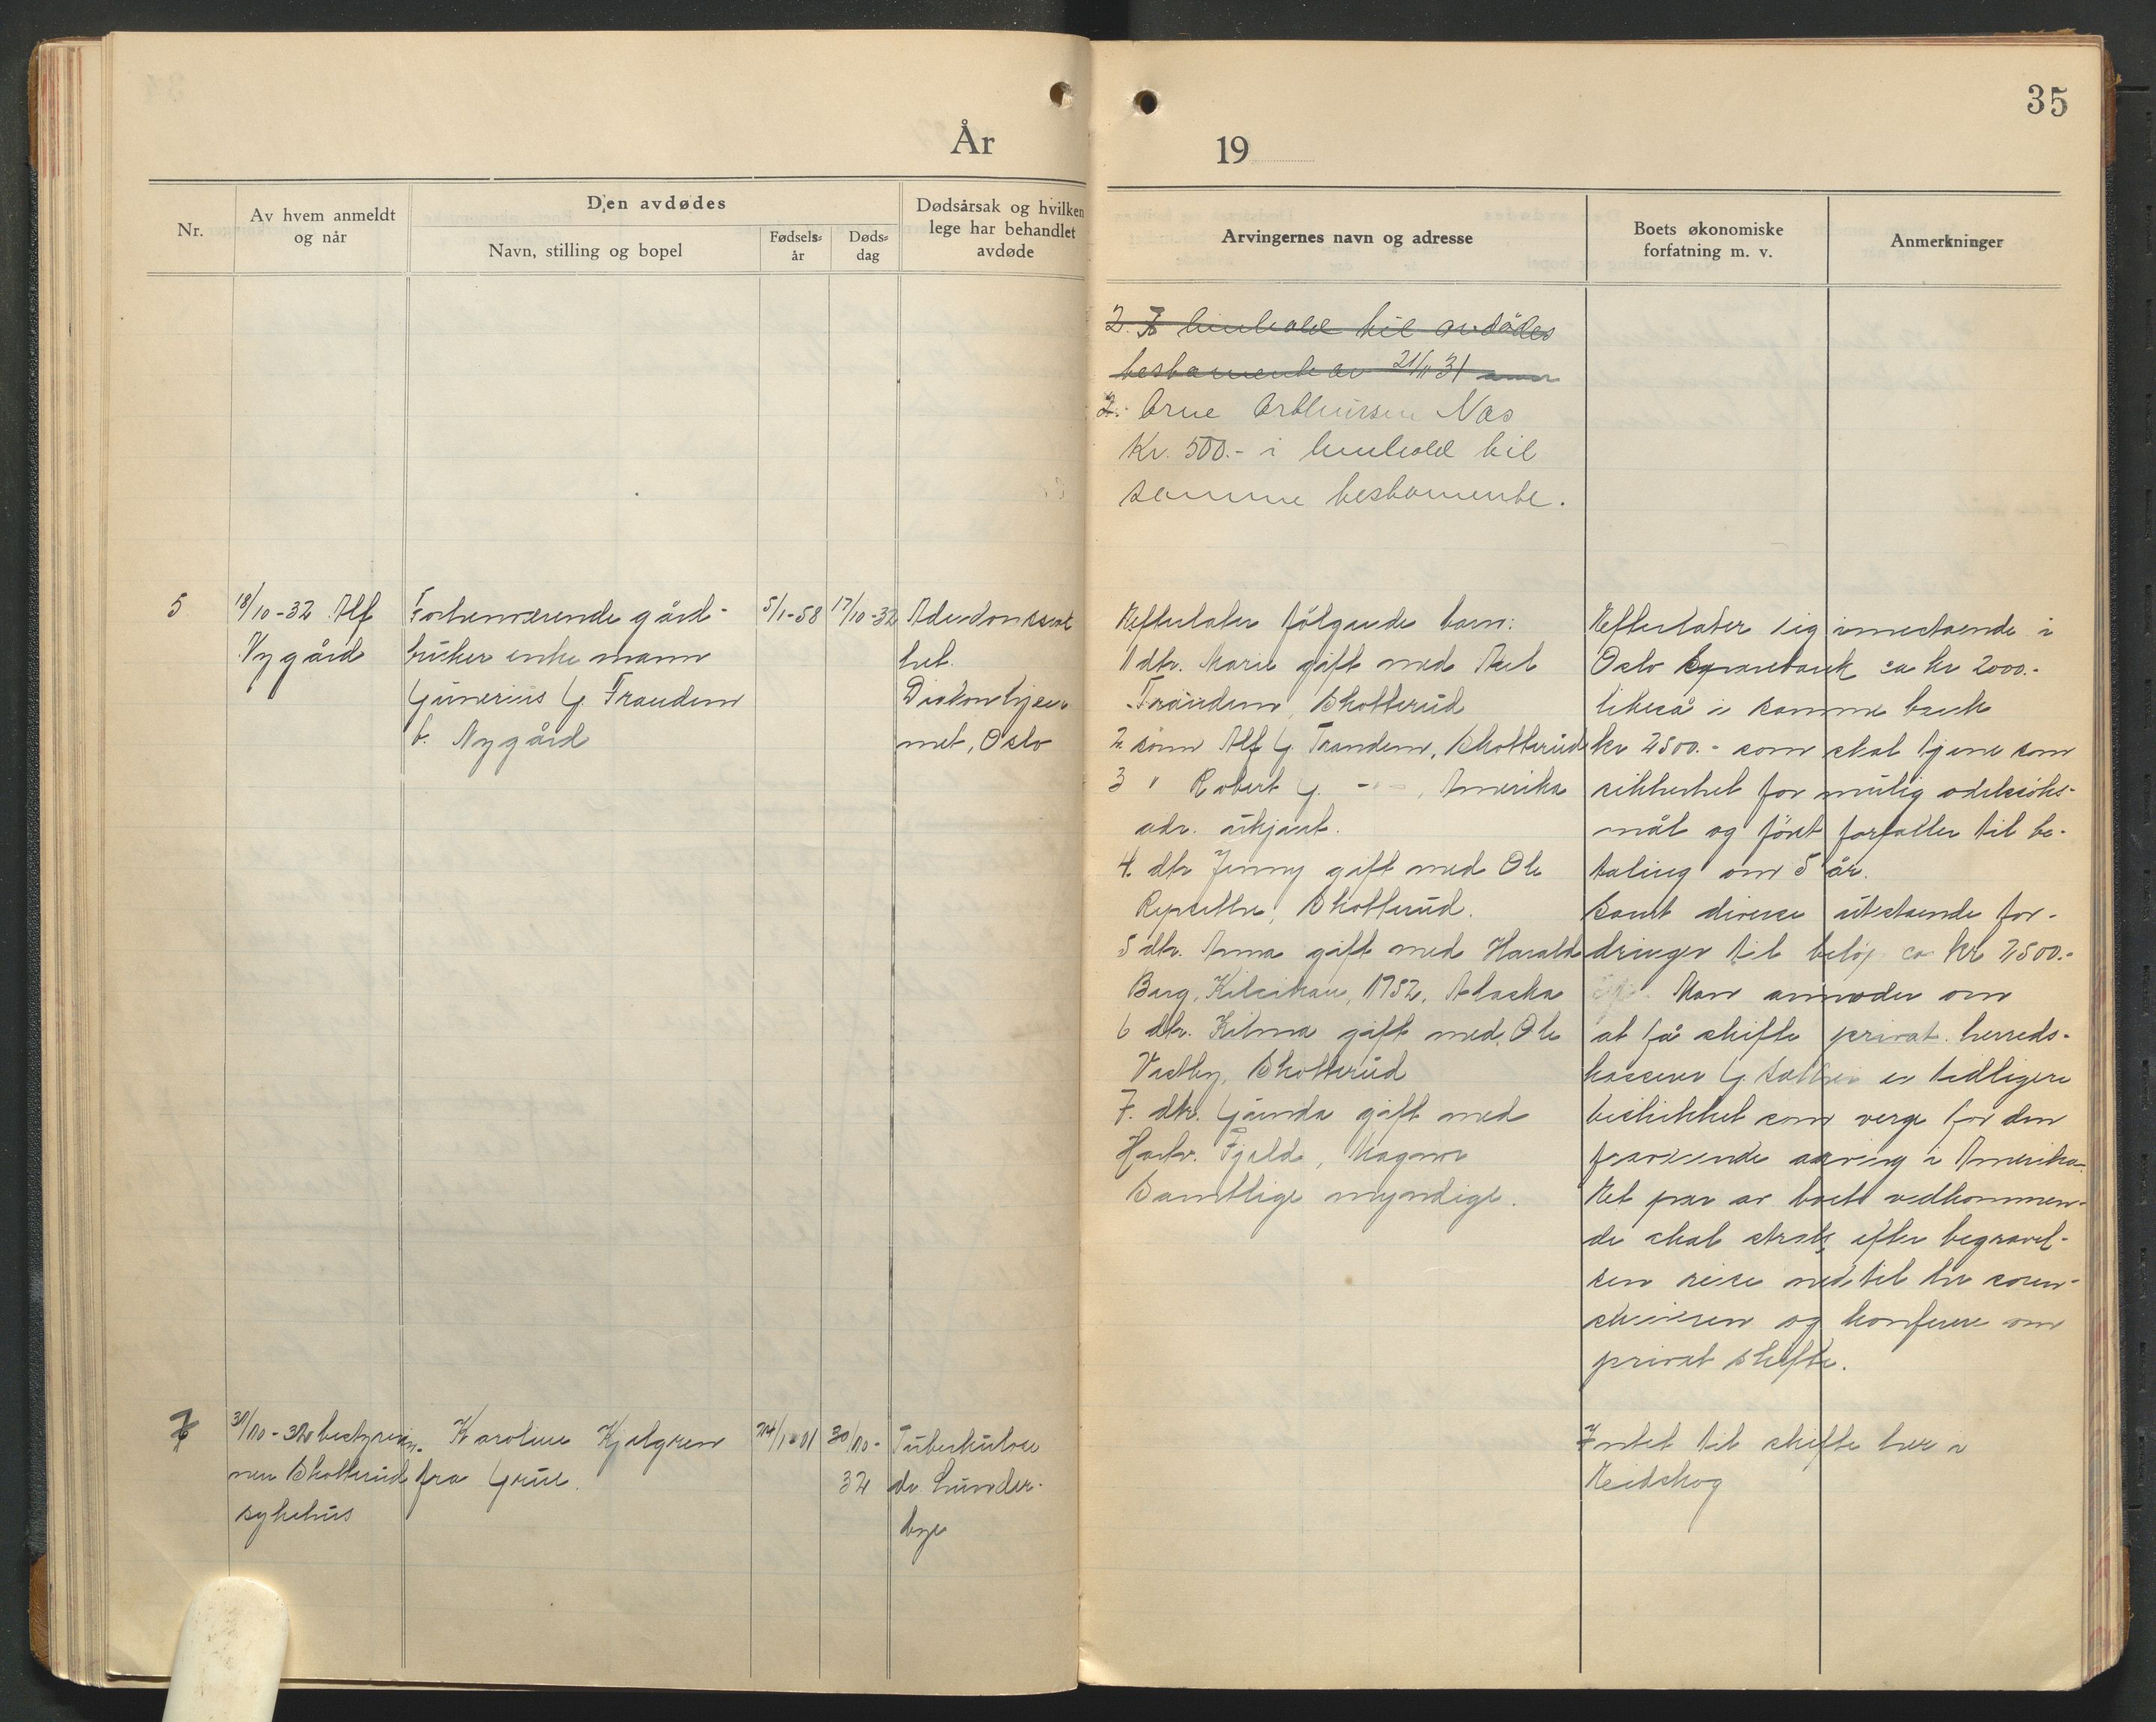 35
År
19
Nr.
Av hvem anmeldt
og når
Den avdødes
Navn, stilling og bopel
Fødsels-
år
Døds-
dag
Dødsårsak og hvilken
lege har behandlet
avdøde
Arvingernes navn og adresse
Boets økonomiske
forfatning m. v.
Anmerkninger
2. I henhold til avdødes
testamente av 21/11 31
2. Arne Arthursen Næs
Kr. 500.- i henhold til
samme testamente.
5
18/10-32 Alf
Nygård
Forhenværende gård-
bruker enkemann
Gunerius G. Trandem
b. Nygård
5/1-58
17/10-32
Alderdomssvak
het.
Diakonhjem
met, Oslo
Efterlater følgende barn:
1 dtr. Marie gift med Axel
Trandem, Skotterud
2 sønn Alf G. Trandem, Skotterud
3 " Robert G. -"- , Amerika
adr. ukjent.
4. dtr Jenny gift med Ole
Skotterud.
5 dtr. Anna gift med Harald
Berg, 1752, Alaska
6 dtr. Hilma gift med Ole
Vestby, Skotterud
7. dtr. Gunda gift med
Fjeld, Magnor
Samtlige myndige.
Efterlater sig innestående i
Oslo Sparebank ca kr 2000.-
likeså i samme bank
kr 2500.- som skal tjene som
sikkerhet for mulig odelssøks-
mål og først forfaller til be-
taling om 5 år.
Samt diverse utestående for-
dringer til beløp ca kr 2,500.-
Man anmoder om
at få skifte privat. herreds-
kasserer G. Sæther er tidligere
beskikket som verge for den
fraværende arving i Amerika.
Et par av boets vedkommen-
de skal straks efter begravel-
sen reise ned til hr soren-
skriveren og konferere om
privat skifte.
6
31/10-32 bestyrerin-
nen Skotterud
sykehus
Karoline Kjelgren
fra Grue.
24/1-01
30/10-
32
Tuberkulose
dr. Lunder-
bye
Intet til skifte her i
Eidskog